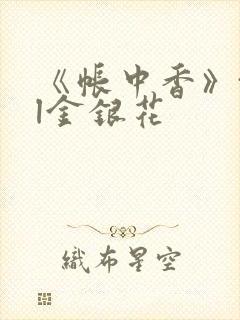 《帳中香》
金銀花
織布星空